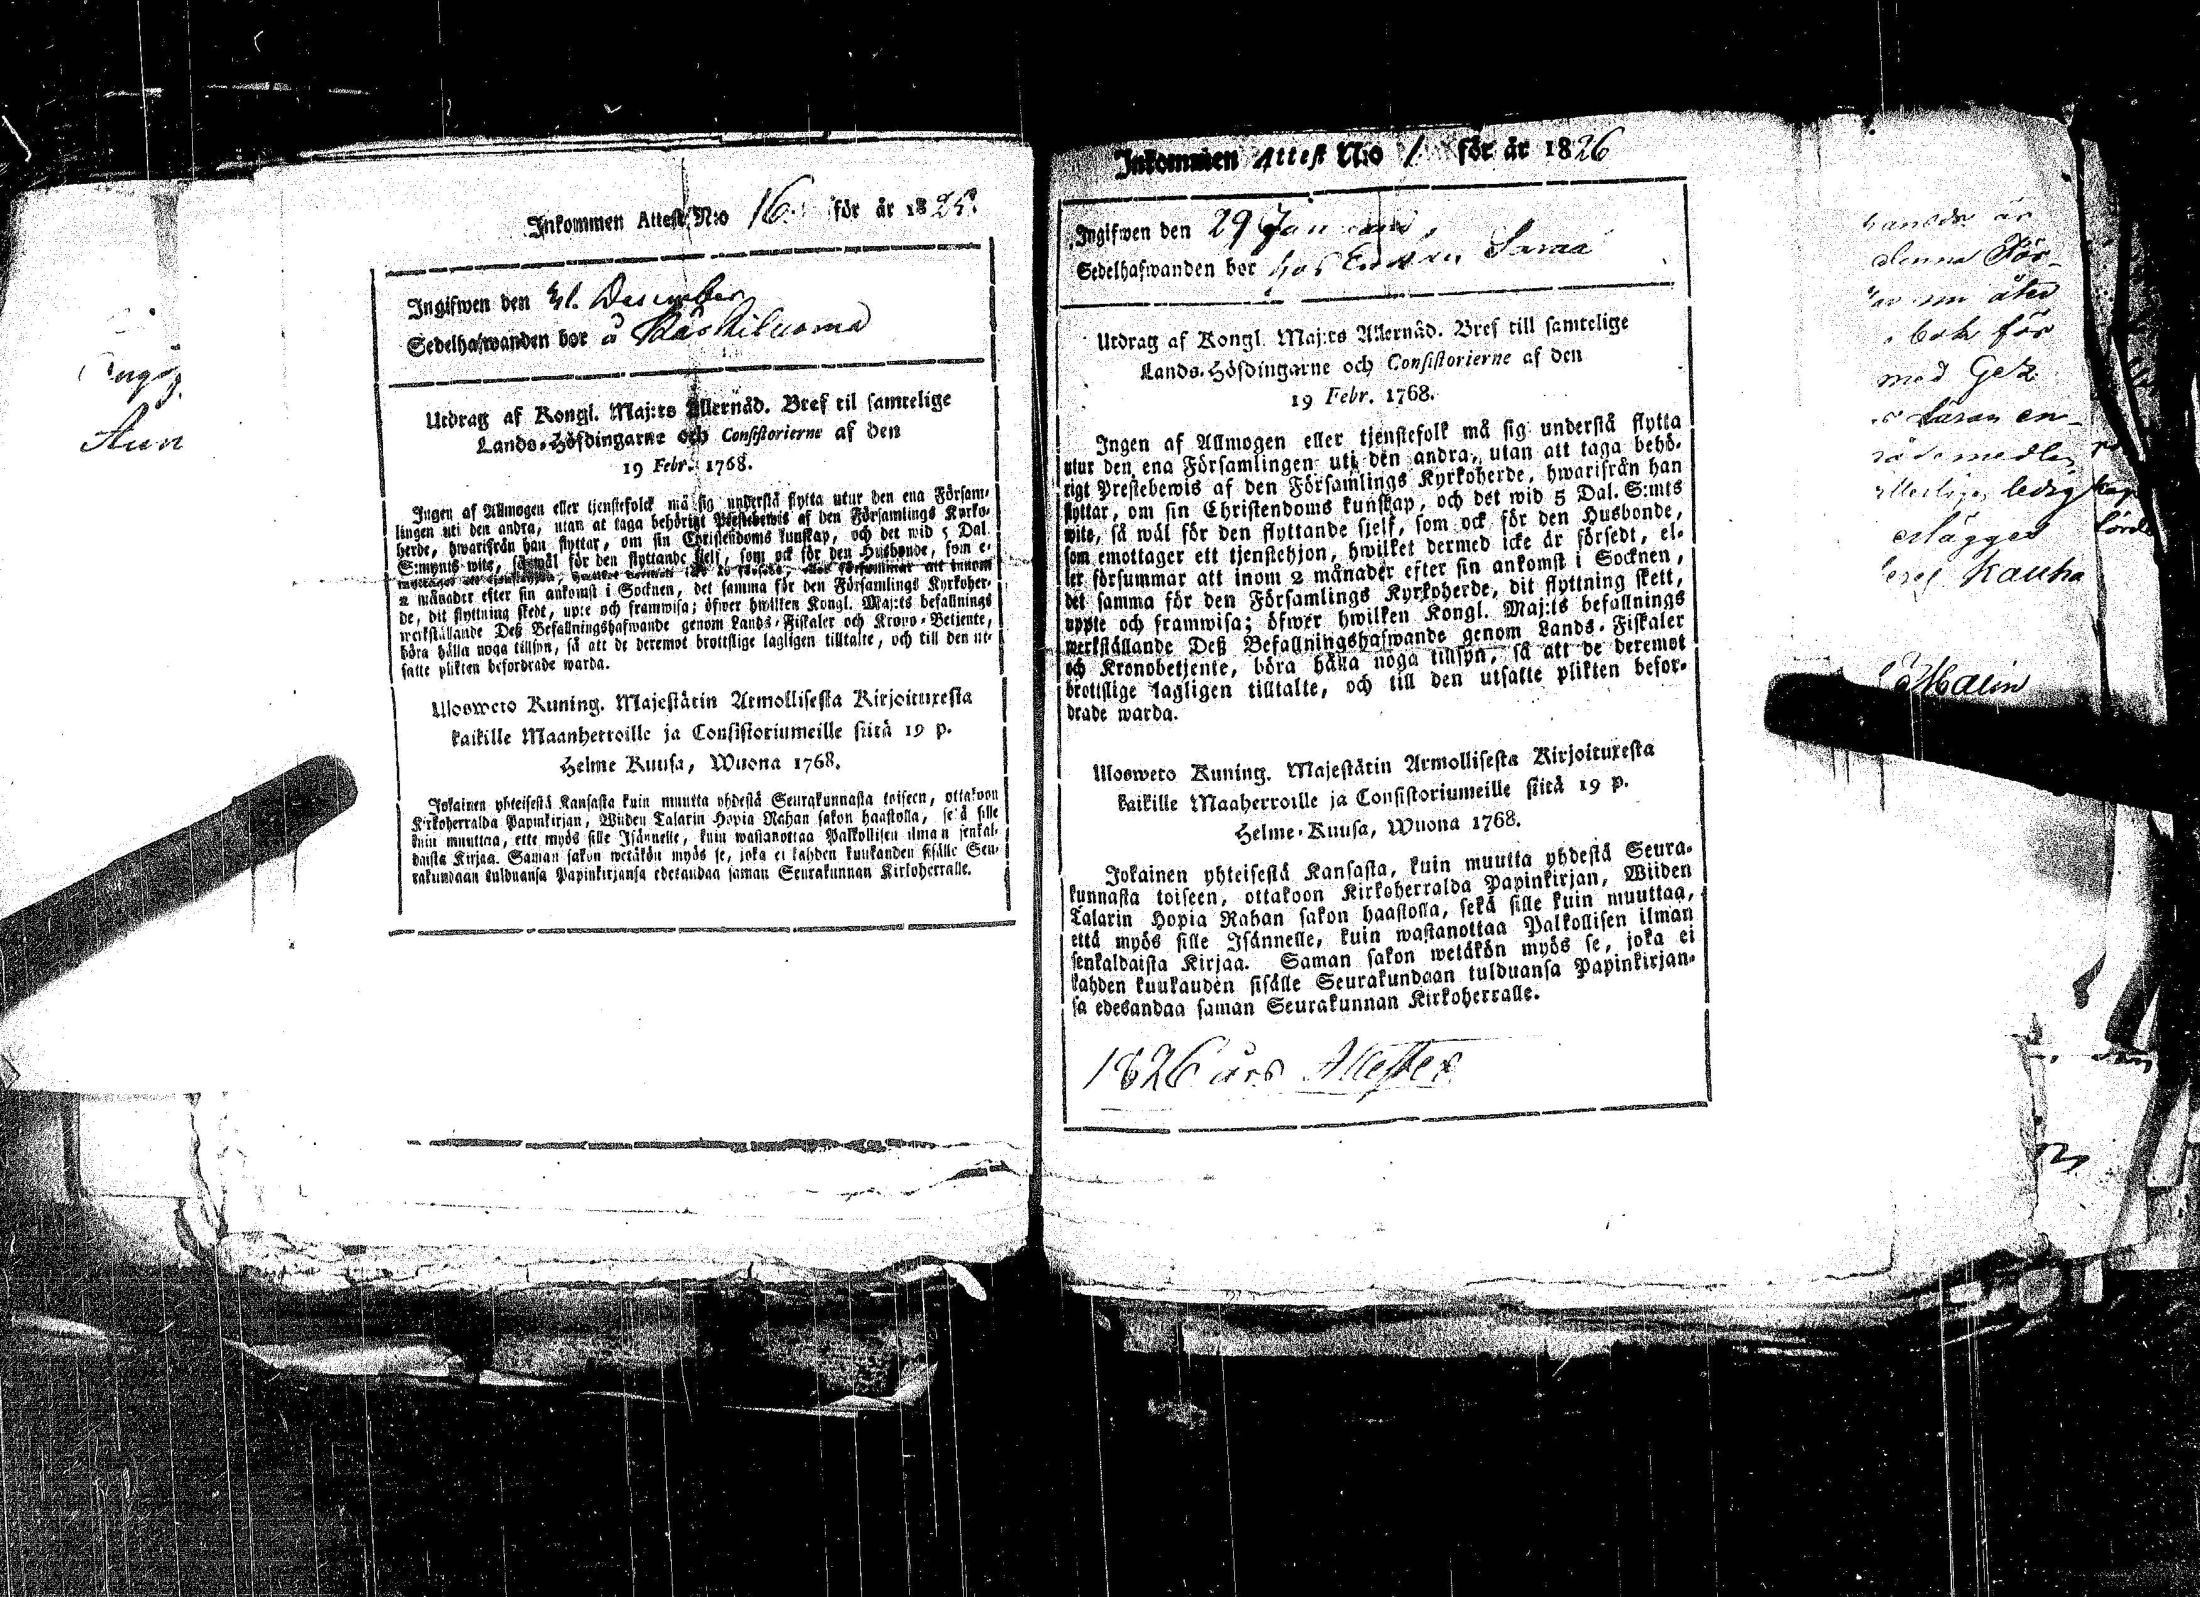 Inkommen Attest N:o 16. för år 1825.
Ingifwen den 31. December
Sedelhafwanden bor å
Utdrag af Kongl. Maj:ts Allernåd. Bref til samtelige
Lands-Höfdingarne och Consistorierne af den
19 Febr. 1768.
Ingen af Allmogen eller tjenstefolck må sig understå flytta utur den ena Församm-
lingen uti den andra, utan at taga behörigt Prestebewis af den Församlings Kyrko-
herde, hwarifrån han flyttar, om sin Christendoms kunskap, och det wid 5 Dal.
S:mynts wite, så wäl för den flyttande sjelf, som ock för den Husbonde, som e-
mottager ett tjenstehjon, hwilket dermed icke är försedt, eller försummar att innom
2 månader efter sin ankomst i Socknen, det samma för den Församlings Kyrkoher-
de, dit flyttning skedt, upte och framwisa; öfwer hwilken Kongl. Maj:ts befallnings
werkställande Deß Befallningshafwande genom Lands-Fiskaler och Krono-Betjente,
böra hålla noga tillsyn, så att de deremot brottslige lagligen tilltalte, och till den ut-
satte plikten befordrade warda.
Ulosweto Kuning. Majestätin Armollisesta Kirjoituxesta
kaikille Maanherroille ja Consistoriumeille siitä 19 p.
Helme Kuusa, Wuona 1768.
Jokainen yhteisestä Kansasta kuin muutta yhdestä Seurakunnasta toiseen, ottakoon
Kirkoherralda Papinkirjan, Wiiden Talarin Hopia Rahan sakon haastolla, sekä sille
kuin muuttaa, ette myös sille Isännelle, kuin wastanottaa Palkollisen ilman senkal-
daista Kirjaa. Saman sakon wetäkön myös se, joka ei kahden kuukauden sisälle Seu-
rakundaan tulduansa Papinkirjansa edesandaa saman Seurakunnan Kirkoherralle.
Inkommen Attest N:o 1 för år 1826
Ingifwen den 29 Januarii
Sedelhafwanden bor hos Enkan
Utdrag af Kongl. Maj:ts Allernåd. Bref till samtelige
Lands-Höfdingarne och Consistorierne af den
19 Febr. 1768.
Ingen af Allmogen eller tjenstefolk må sig understå flytta
utur den ena Församlingen uti den andra, utan att taga behö-
rigt Prestebewis af den Församlings Kyrkoherde, hwarifrån han
flyttar, om sin Christendoms kunskap, och det wid 5 Dal. S:mts
wite, så wäl för den flyttande sjelf, som ock för den Husbonde,
som emottager ett tjenstehjon, hwilket dermed icke är försedt, el-
ler försummar att inom 2 månader efter sin ankomst i Socknen,
det samma för den Församlings Kyrkoherde, dit flyttning skett,
uppte och framwisa; öfwer hwilken Kongl. Maj:ts befallnings
werkställande Deß Befallningshafwande genom Lands-Fiskaler
och Kronobetjente, böra hålla noga tillsyn, så att de deremot
brottslige lagligen tilltalte, och till den utsatte plikten befor-
drade warda.
Ulosweto Kuning. Majestätin Armollisesta Kirjoituxesta
kaikille Maaherroille ja Consistoriumeille siitä 19 p.
Helme-Kuusa, Wuona 1768.
Jokainen yhteisestä Kansasta, kuin muutta yhdestä Seura-
kunnasta toiseen, ottakoon Kirkoherralda Papinkirjan, Wiiden
Talarin Hopia Rahan sakon haastolla, sekä sille kuin muuttaa,
että myös sille Isännelle, kuin wastanottaa Palkollisen ilman
senkaldaista Kirjaa. Saman sakon wetäkön myös se, joka ei
kahden kuukauden sisälle Seurakundaan tulduansa Papinkirjan-
sa edesandaa saman Seurakunnan Kirkoherralle.
1826 års Attester
denna För-
åter
bok för
med Gez
läran en-
ledig
Kauha
Malin